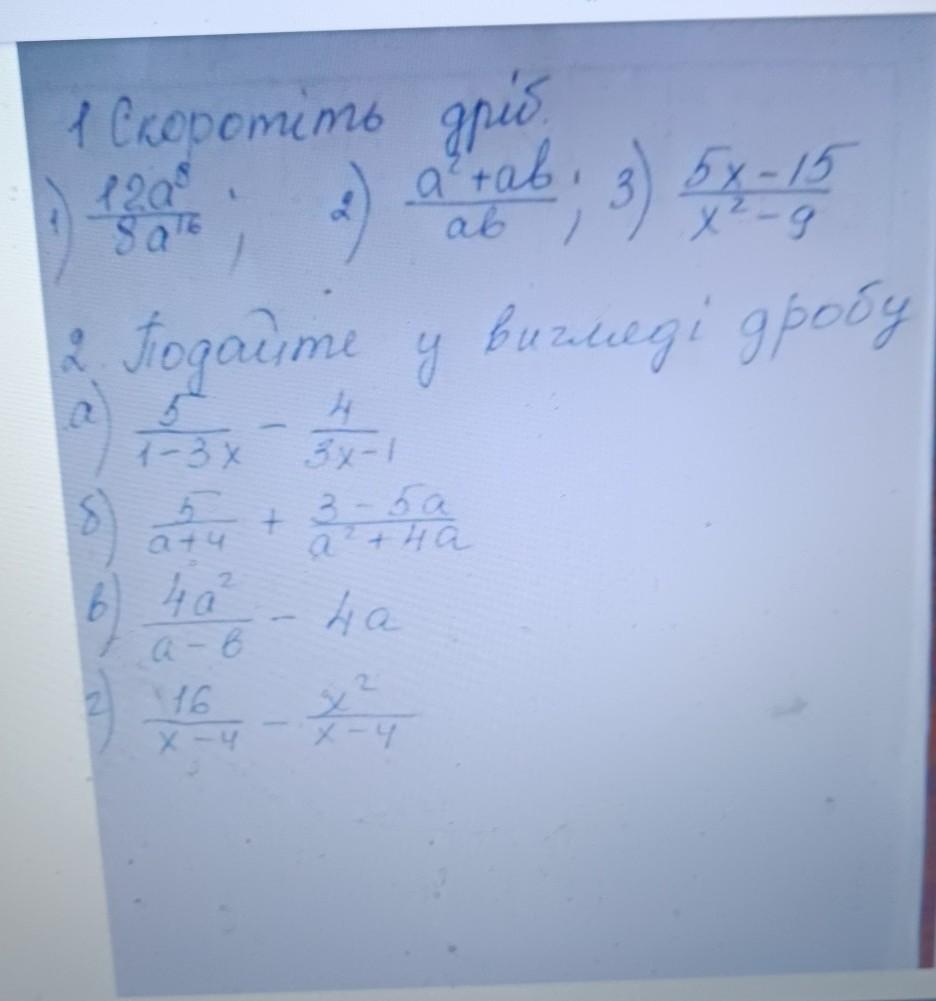 1 Скоротіть дріб.
1) 12a⁸/8a¹⁶ ; 2) a²+ab/ab ; 3) 5x-15/x²-9
2. Подайте у вигляді дробу
а) 5/1-3x - 4/3x-1
б) 5/a+4 + 3-5a/a²+4a
в) 4a²/a-b - 4a
г) 16/x-4 - x²/x-4